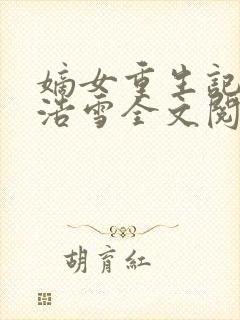 嫡女重生記
浩雪全文閱
胡育紅